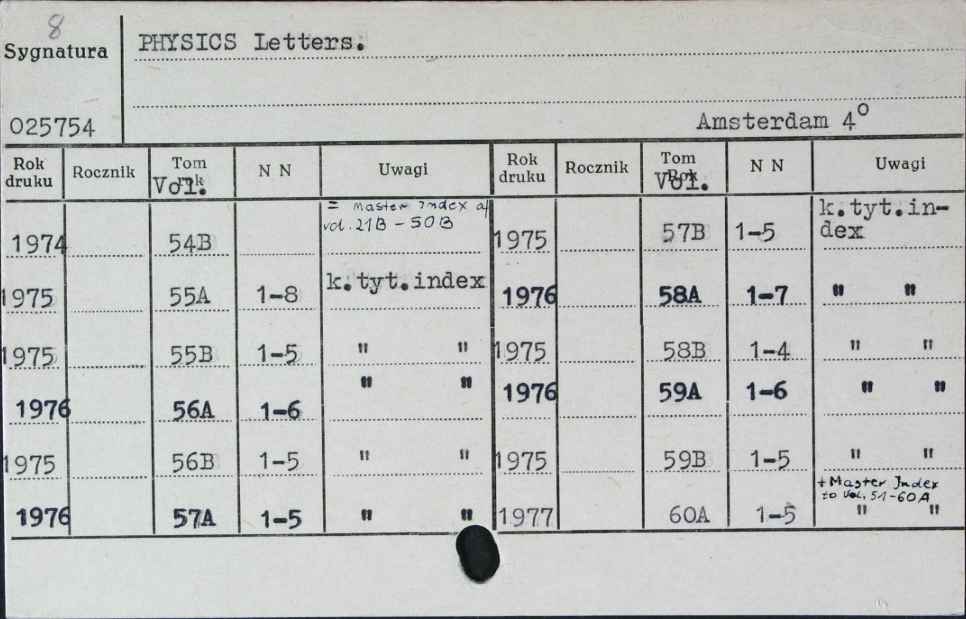 8
Sygnatura
PHYSICS Letters.
025754
Amsterdam 4°
Rok druku | Rocznik | Tom Vol. | N N | Uwagi | Rok druku | Rocznik | Tom Vol. | N N | Uwagi
= Master Index of
vol. 21B - 50B
1974 | 54B
k.tyt.in-
dex
1975 | 57B | 1-5
1975 | 55A | 1-8 | k.tyt.index
1976 | 58A | 1-7 | " "
1975 | 55B | 1-5 | " "
1975 | 58B | 1-4 | " "
1976 | 56A | 1-6 | " "
1976 | 59A | 1-6 | " "
1975 | 56B | 1-5 | " "
1975 | 59B | 1-5 | " "
1976 | 57A | 1-5 | " "
+Master Index
to Vol. 51-60A
1977 | 60A | 1-5 | " "